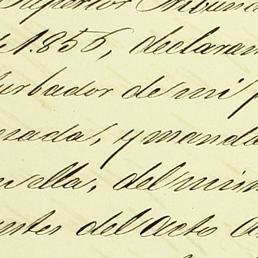 Superior Tribuna
de 1856, declaran
turbador de mi p
esada, y mando
uella, del mism
untes del acto a